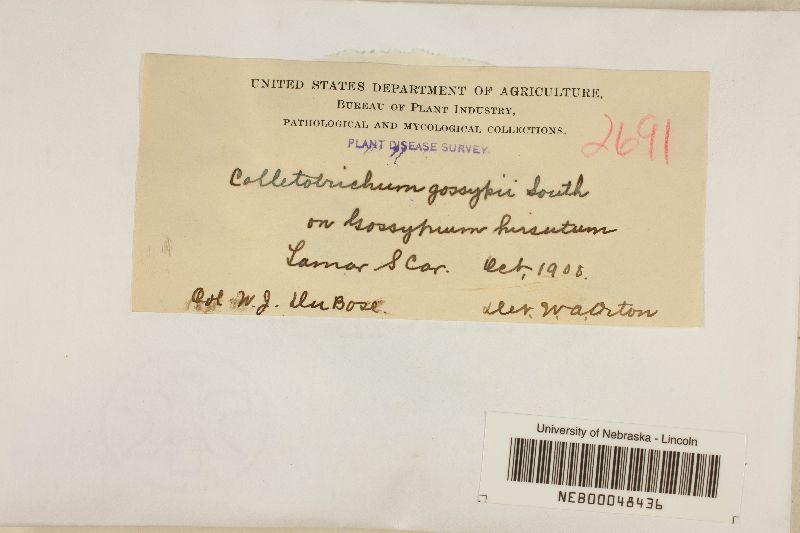 UNITED STATES DEPARTMENT OF AGRICULTURE,
BUREAU OF PLANT INDUSTRY,
PATHOLOGICAL AND MYCOLOGICAL COLLECTIONS.
2691
PLANT DISEASE SURVEY.
Colletotrichum gossypii South
on Gossypium hirsutum
Lamar S Car. Oct, 1908.
Col W. J. DuBose. Det. W.A. Orton
University of Nebraska - Lincoln
NEB00048436